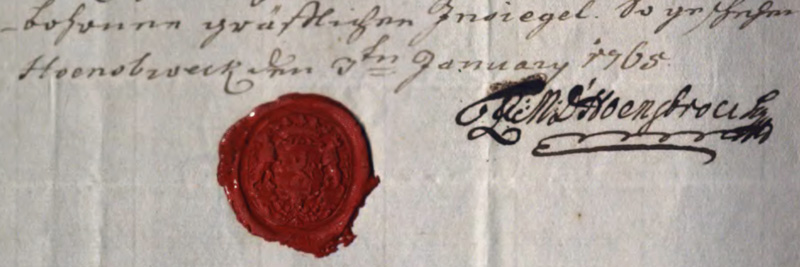 -bohrnen gräfflichen Insiegel. So geschehen
Hoensbroeck den 7ten January 1765.
D'Hoensbroeck